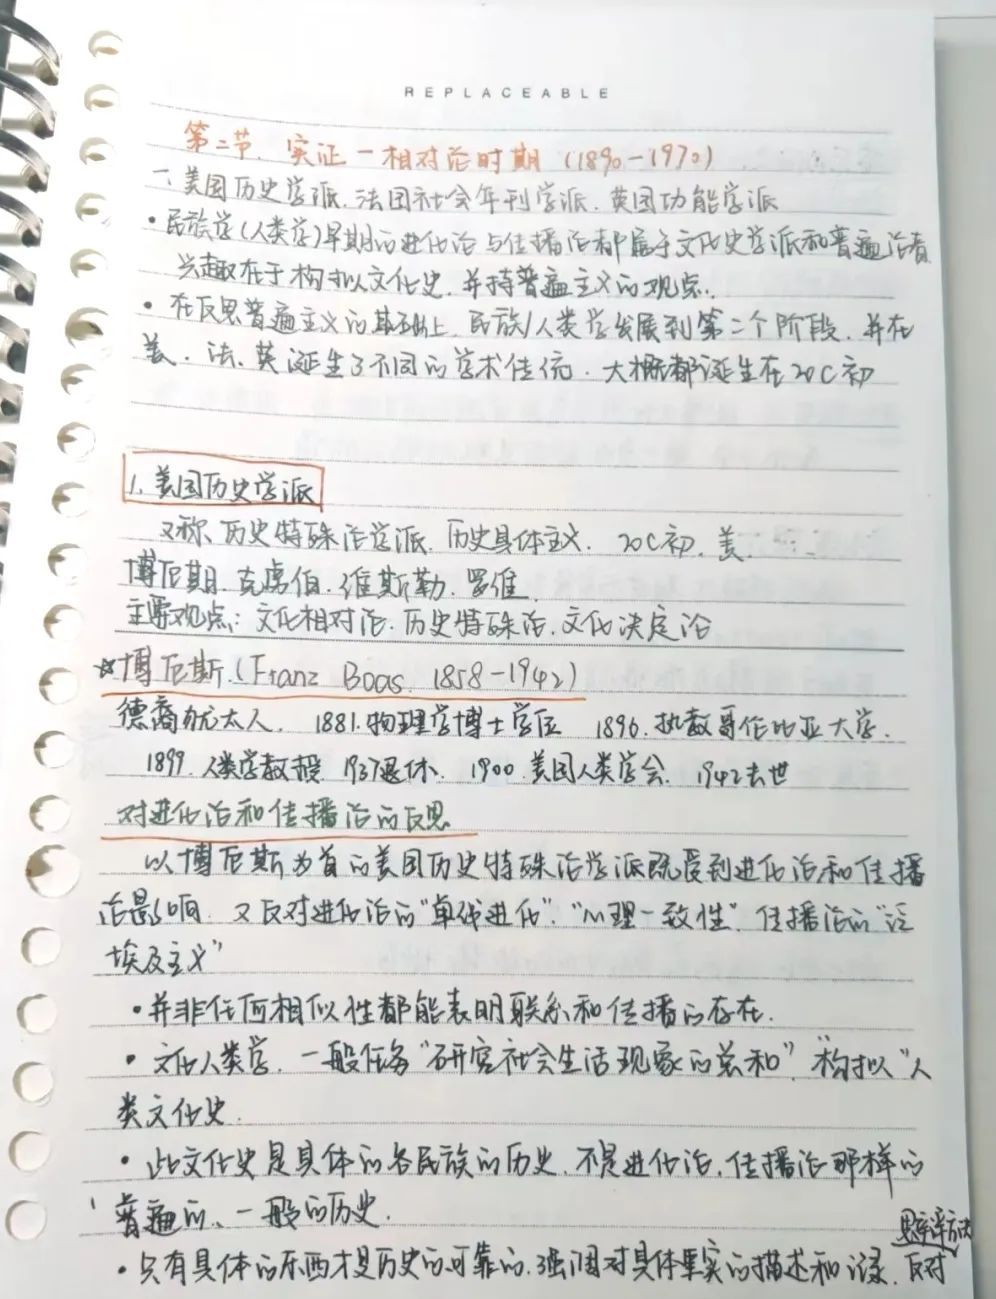 REPLACEABLE
第二节. 实证一相对论时期 (1890-1970)
一、美国历史学派. 法国社会年刊学派. 英国功能学派
• 民族学(人类学)早期的进化论与传播论都属于文化史学派和普遍论者.
兴趣在于构拟文化史. 并持普遍主义的观点.
• 在反思普遍主义的基础上. 民族/人类学发展到第二个阶段. 并在
美. 法. 英诞生了不同的学术传统. 大概都诞生在20C初
1. 美国历史学派
又称. 历史特殊论学派. 历史具体主义. 20C初. 美.
博厄斯. 克虏伯. 维斯勒. 罗维
主要观点: 文化相对论. 历史特殊论. 文化决定论
☆博厄斯. (Franz Boas. 1858-1942)
德裔犹太人. 1881. 物理学博士学位 1896. 执教哥伦比亚大学.
1899. 人类学教授 1937退休. 1900. 美国人类学会. 1942去世
对进化论和传播论的反思
以博厄斯为首的美国历史特殊论学派既受到进化论和传播
论影响. 又反对进化论的"单线进化". "心理一致性". 传播论的"泛
埃及主义"
• 并非任何相似性都能表明联系和传播的存在.
• 文化人类学. 一般任务"研究社会生活现象的总和". "构拟"人
类文化史.
• 此文化史是具体的各民族的历史. 不是进化论. 传播论那样的
普遍的、一般的历史.
• 只有具体的东西才是历史的可靠的. 强调对具体事实的描述和记录. 反对